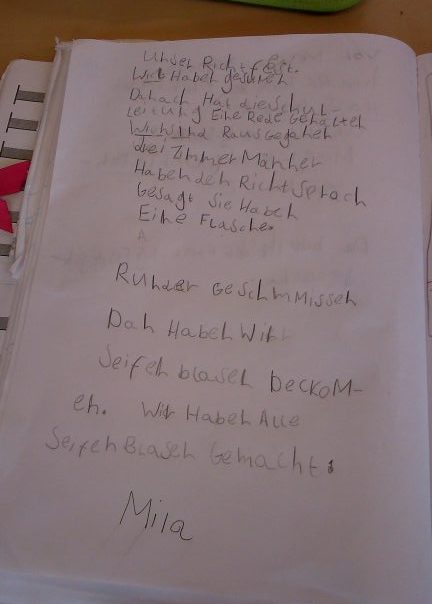 Unser Richtfest.
Wir Haben gesungen
Danach Hat die Schul-
Leitung Eine Rede Gehalten
Wir sind Rausgegangen
drei Zimmer Männer
Haben den Richtsprach
Gesagt Sie Haben
Eine Flasche.
Runder Geschmissen
Dan Haben Wir
Seifenblasen beckom-
en. Wir Haben Alle
Seifenblasen Gemacht.
Mila